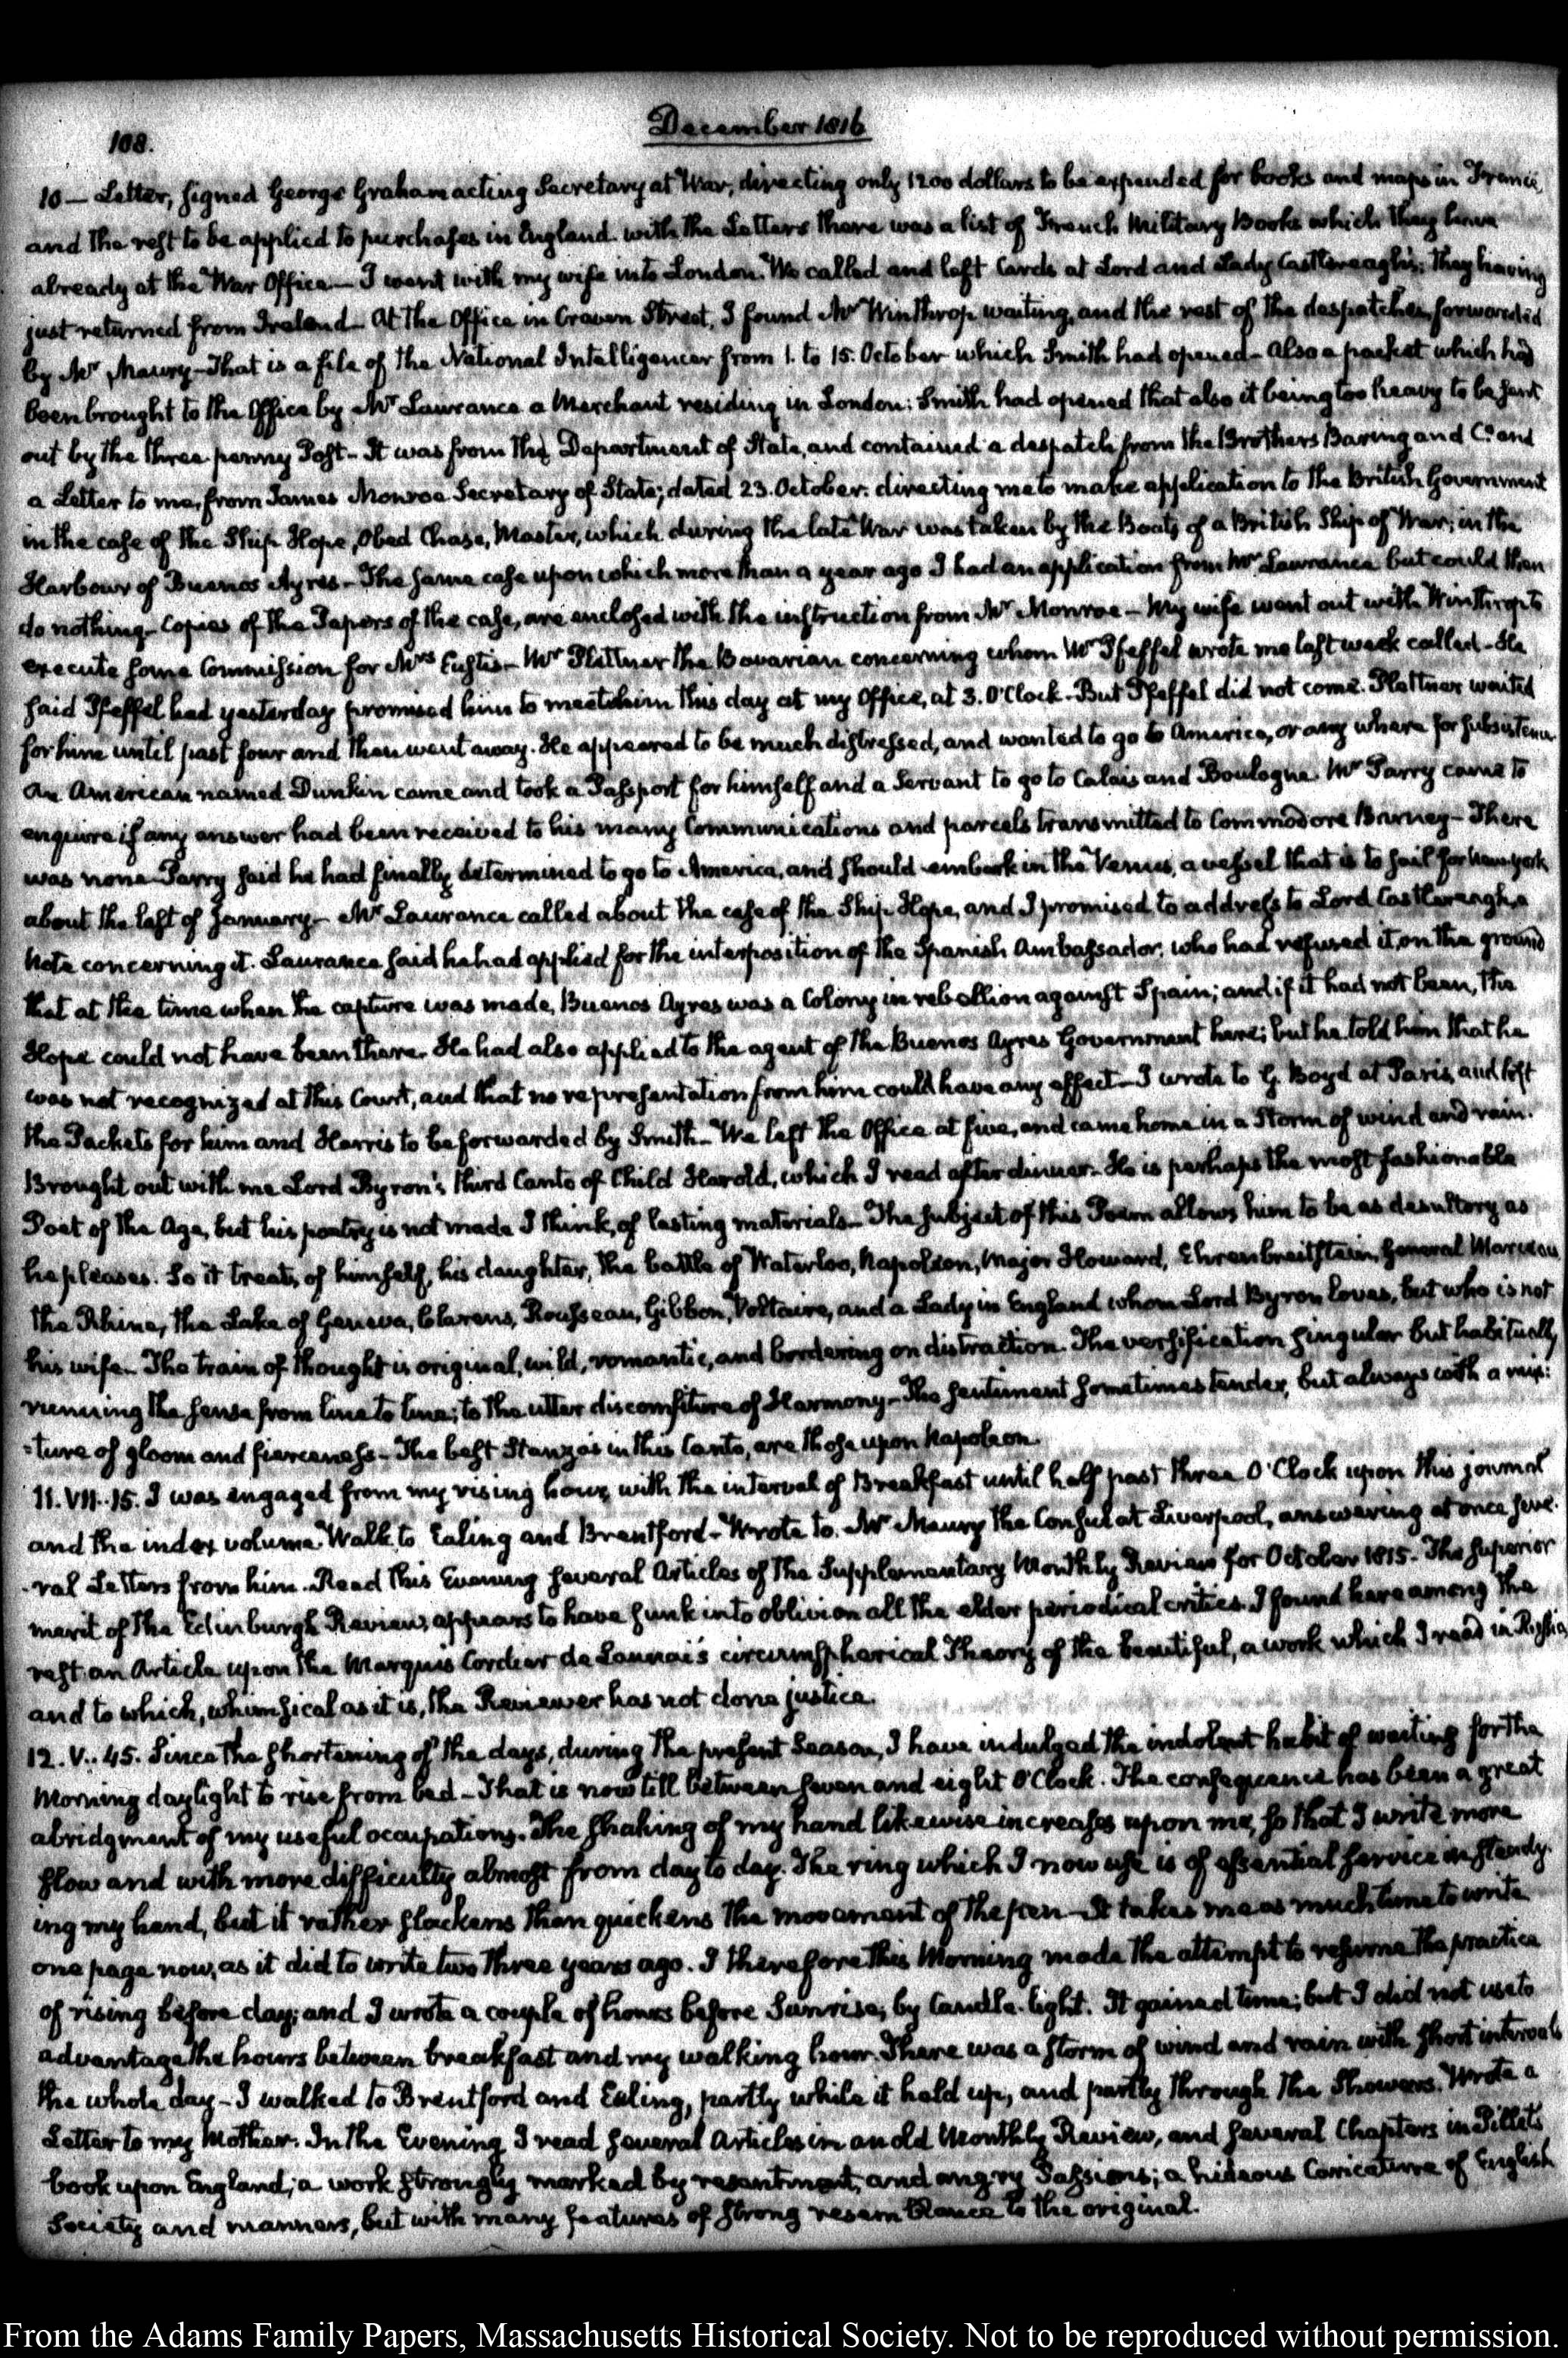 108.
December 1816
10 — Letter, signed George Graham acting Secretary at War, directing only 1200 dollars to be expended for books and maps in France,
and the rest to be applied to purchases in England. with the Letters there was a list of French Military Books which they have
already at the War Office — I went with my wife into London. We called and left Cards at Lord and Lady Castlereagh's; they having
just returned from Ireland — At the Office in Craven Street, I found Mr Winthrop waiting, and the rest of the despatches forwarded
by Mr Maury — That is a file of the National Intelligencer from 1. to 15. October which Smith had opened — Also a packet which had
been brought to the Office by Mr Lawrance a Merchant residing in London: Smith had opened that also it being too heavy to be sent
out by the three penny Post — It was from the Department of State, and contained a despatch from the Brothers Baring and Co. and
a Letter to me, from James Monroe Secretary of State; dated 23. October. directing me to make application to the British Government
in the case of the Ship Hope, Obed Chase, Master, which during the late War was taken by the Boats of a British Ship of War; in the
Harbour of Buenos Ayres — The same case upon which more than a year ago I had an application from Mr Lawrance but could then
do nothing — Copies of the Papers of the case, are enclosed with the instruction from Mr Monroe — My wife went out with Winthrop to
execute some Commission for Mrs Eustis — Mr Plattner the Bavarian concerning whom Mr Pfeffel wrote me last week called — He
said Pfeffel had yesterday promised him to meet him this day at my Office, at 3. O'Clock — But Pfeffel did not come. Plattner waited
for him until past four and then went away. He appeared to be much distressed, and wanted to go to America, or any where for subsistence
An American named Dunkin came and took a Passport for himself and a Servant to go to Calais and Boulogne. Mr Parry came to
enquire if any answer had been received to his many Communications and parcels transmitted to Commodore Barney — There
was none — Parry said he had finally determined to go to America, and should embark in the Venus, a vessel that is to sail for New-York
about the last of January — Mr Laurance called about the case of the Ship Hope, and I promised to address to Lord Castlereagh, a
Note concerning it. Laurance said he had applied for the interposition of the Spanish Ambassador: who had refused it, on the ground
that at the time when the capture was made, Buenos Ayres was a Colony in rebellion against Spain; and if it had not been, the
Hope could not have been there. He had also applied to the agent of the Buenos Ayres Government here; but he told him that he
was not recognized at this Court, and that no representation from him could have any effect — I wrote to G. Boyd at Paris, and left
the Packets for him and Harris to be forwarded by Smith — We left the Office at five, and came home in a Storm of wind and rain.
Brought out with me Lord Byron's third Canto of Child Harold, which I read after dinner — He is perhaps the most fashionable
Poet of the Age, but his poetry is not made I think, of lasting materials — The subject of this Poem allows him to be as desultory as
he pleases. So it treats, of himself, his daughter, the battle of Waterloo, Napoleon, Major Howard, Ehrenbreitstein, General Marceau
the Rhine, the Lake of Geneva, Clarens, Rousseau, Gibbon, Voltaire, and a Lady in England whom Lord Byron loves, but who is not
his wife — The train of thought is original, wild, romantic, and bordering on distraction. The versification singular but habitually
running the sense from line to line; to the utter discomfiture of Harmony — The sentiment sometimes tender, but always with a mix:
=ture of gloom and fierceness — The best Stanzas in this Canto, are those upon Napoleon.
11. VII. 15. I was engaged from my rising hour, with the interval of Breakfast until half past three O'Clock upon this journal
and the index volume. Walk to Ealing and Brentford — Wrote to Mr Maury the Consul at Liverpool, answering at once seve-
-ral Letters from him. Read this Evening several Articles of the Supplementary Monthly Review for October 1815 — The superior
merit of the Edinburgh Review, appears to have sunk into oblivion all the elder periodical critics. I found here among the
rest an Article upon the Marquis Cordier de Launai's circumspherical Theory of the beautiful, a work which I read in Russia
and to which, whimsical as it is, the Reviewer has not done justice.
12. V. 45. Since the shortening of the days, during the present Season, I have indulged the indolent habit of waiting for the
Morning daylight to rise from bed — That is now till between seven and eight O'Clock. The consequence has been a great
abridgment of my useful occupations. The shaking of my hand likewise increases upon me, so that I write more
slow and with more difficulty almost from day to day. The ring which I now use is of essential service in steady-
ing my hand, but it rather slackens than quickens the movement of the pen — It takes me as much time to write
one page now, as it did to write two three years ago. I therefore this Morning made the attempt to resume the practice
of rising before day; and I wrote a couple of hours before Sunrise, by Candle-light. It gained time; but I did not use to
advantage the hours between breakfast and my walking hour. There was a storm of wind and rain with short intervals
the whole day — I walked to Brentford and Ealing, partly while it held up, and partly through the Showers. Wrote a
Letter to my Mother. In the Evening I read several Articles in an old Monthly Review, and several Chapters in Pillet's
book upon England; a work strongly marked by resentment, and angry Passions; a hideous Caricature of English
Society and manners, but with many features of strong resemblance to the original.
From the Adams Family Papers, Massachusetts Historical Society. Not to be reproduced without permission.